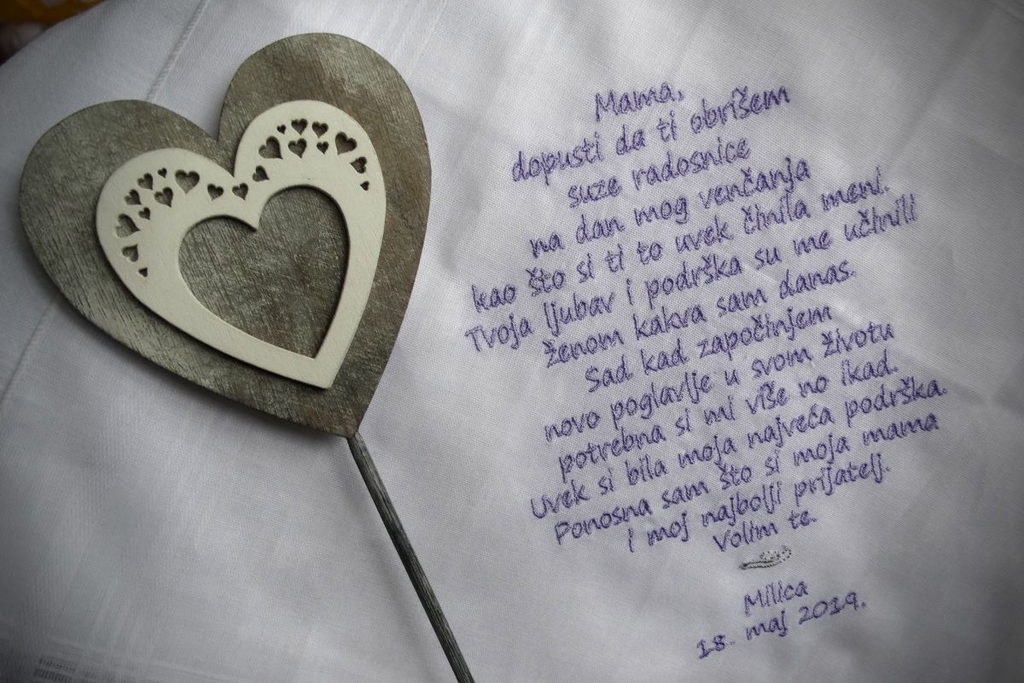 Mama,
dopusti da ti obrišem
suze radosnice
na dan mog venčanja
kao što si ti to uvek činila meni.
Tvoja ljubav i podrška su me učinili
ženom kakva sam danas.
Sad kad započinjem
novo poglavlje u svom životu
potrebna si mi više no ikad.
Uvek si bila moja najveća podrška.
Ponosna sam što si moja mama
i moj najbolji prijatelj.
Volim te.
Milica
18. maj 2019.